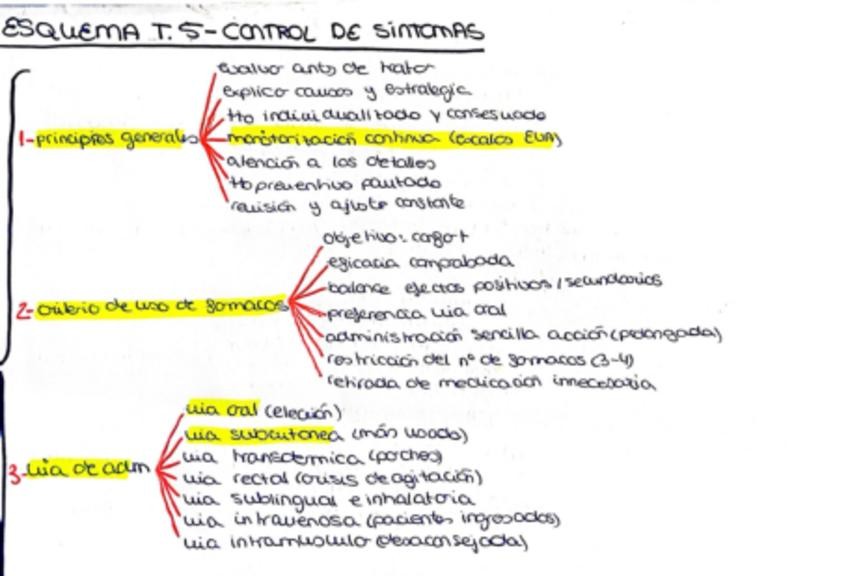 ESQUEMA T.5-CONTROL DE SíNTOMAS
1-principios generales
evaluar antes de tratar
explicar causas y estrategia
tto individualitado y consesuado
monitorización continua (escalas EVA)
atención a los detalles
tto preventivo pautado
revisión y ajuste constante
2-criterio de uso de farmacos
objetivo:
eficacia comprobada
balance efectos positivos/secundarios
preferencia via oral
administración sencilla acción (prolongada)
restricción del nº de farmacos (3-4)
retirada de medicación innecesaria
3-via de adm
via oral (elección)
via subcutanea (más usada)
via transdermica (parches)
via rectal (crisis de agitación)
via sublingual e inhalatoria
via intravenosa (pacientes ingresados)
via intramusculo (desaconsejada)